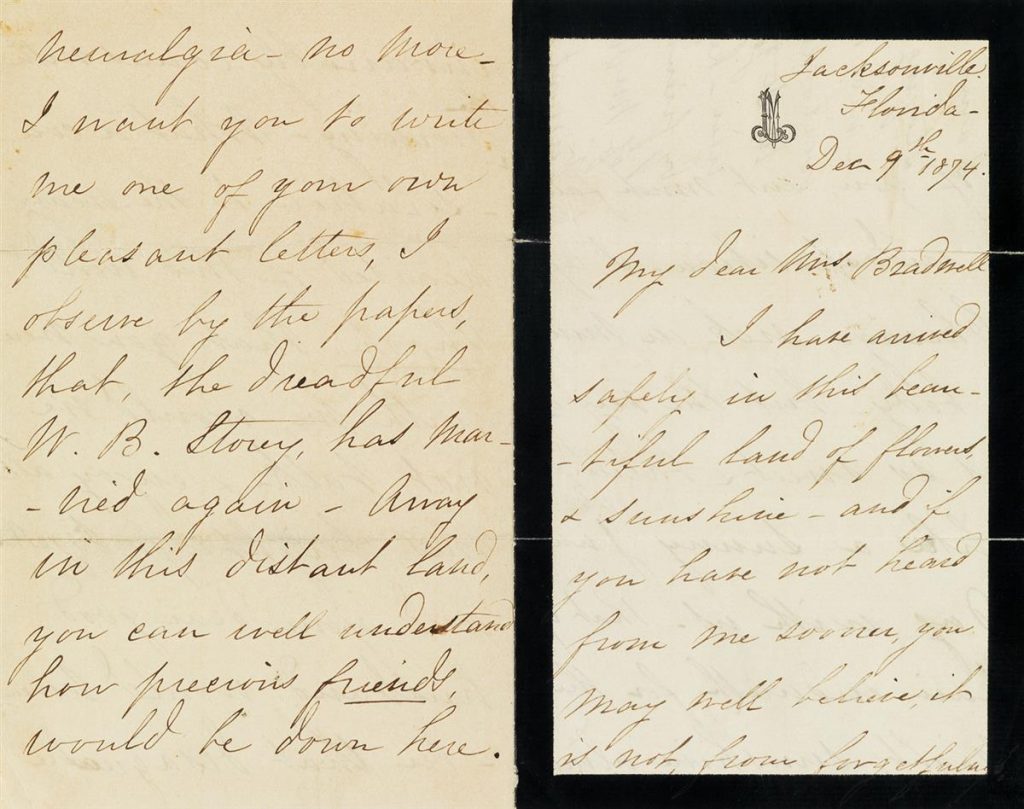 neuralgia - no more -
I want you to write
me one of your own
pleasant letters, I
observe by the papers,
that, the dreadful
W. B. Storey, has mar-
-ried again - Away
in this distant land,
you can well understand
how precious friends,
would be down here.
Jacksonville.
Florida -
Dec 9th 1874.
My dear Mrs. Bradwell
I have arrived
safely in this beau-
-tiful land of flowers,
& sunshine - and if
you have not heard
from me sooner, you
may well believe, it
is not, from forgetfuln